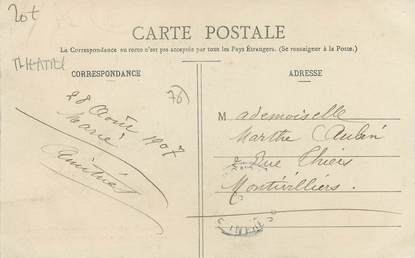 20t
CARTE POSTALE
La Correspondance au recto n'est pas acceptée par tous les Pays Étrangers. (Se renseigner à la Poste.)
THEATRE
CORRESPONDANCE
ADRESSE
76
28 Août 1907
Marie
Amitiés
Mademoiselle
Marthe Auben
Rue Thiers
Montivilliers